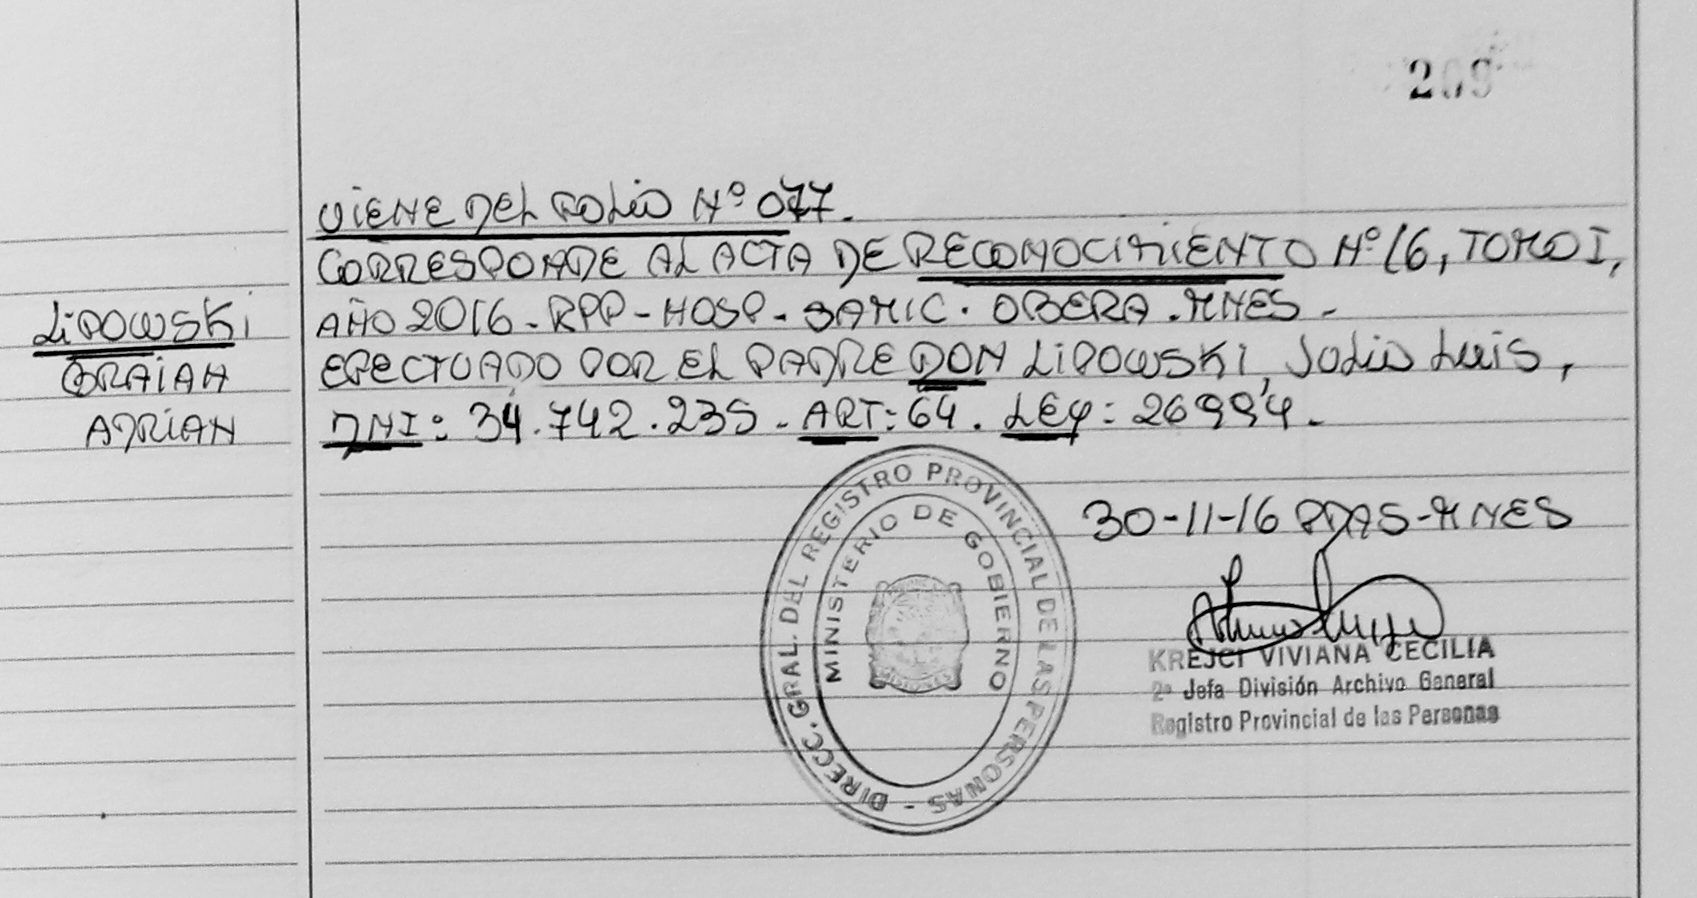 209
VIENE DEL FOLIO Nº 077.
CORRESPONDE AL ACTA DE RECONOCIMIENTO Nº 16, TOMO I,
AÑO 2016 - RPP - HOSP - SAMIC. OBERA. MNES -
EFECTUADO POR EL PADRE DON LIPOWSKI, JULIO LUIS,
DNI: 34.742.235 - ART: 64. LEY: 26994.
LIPOWSKI
BRAIAN
ADRIAN
30-11-16 PDAS-MNES
KREJCI VIVIANA CECILIA
2ª Jefa División Archivo General
Registro Provincial de las Personas
DIRECC. GRAL. DEL REGISTRO PROVINCIAL DE LAS PERSONAS -
MINISTERIO DE GOBIERNO
MISIONES